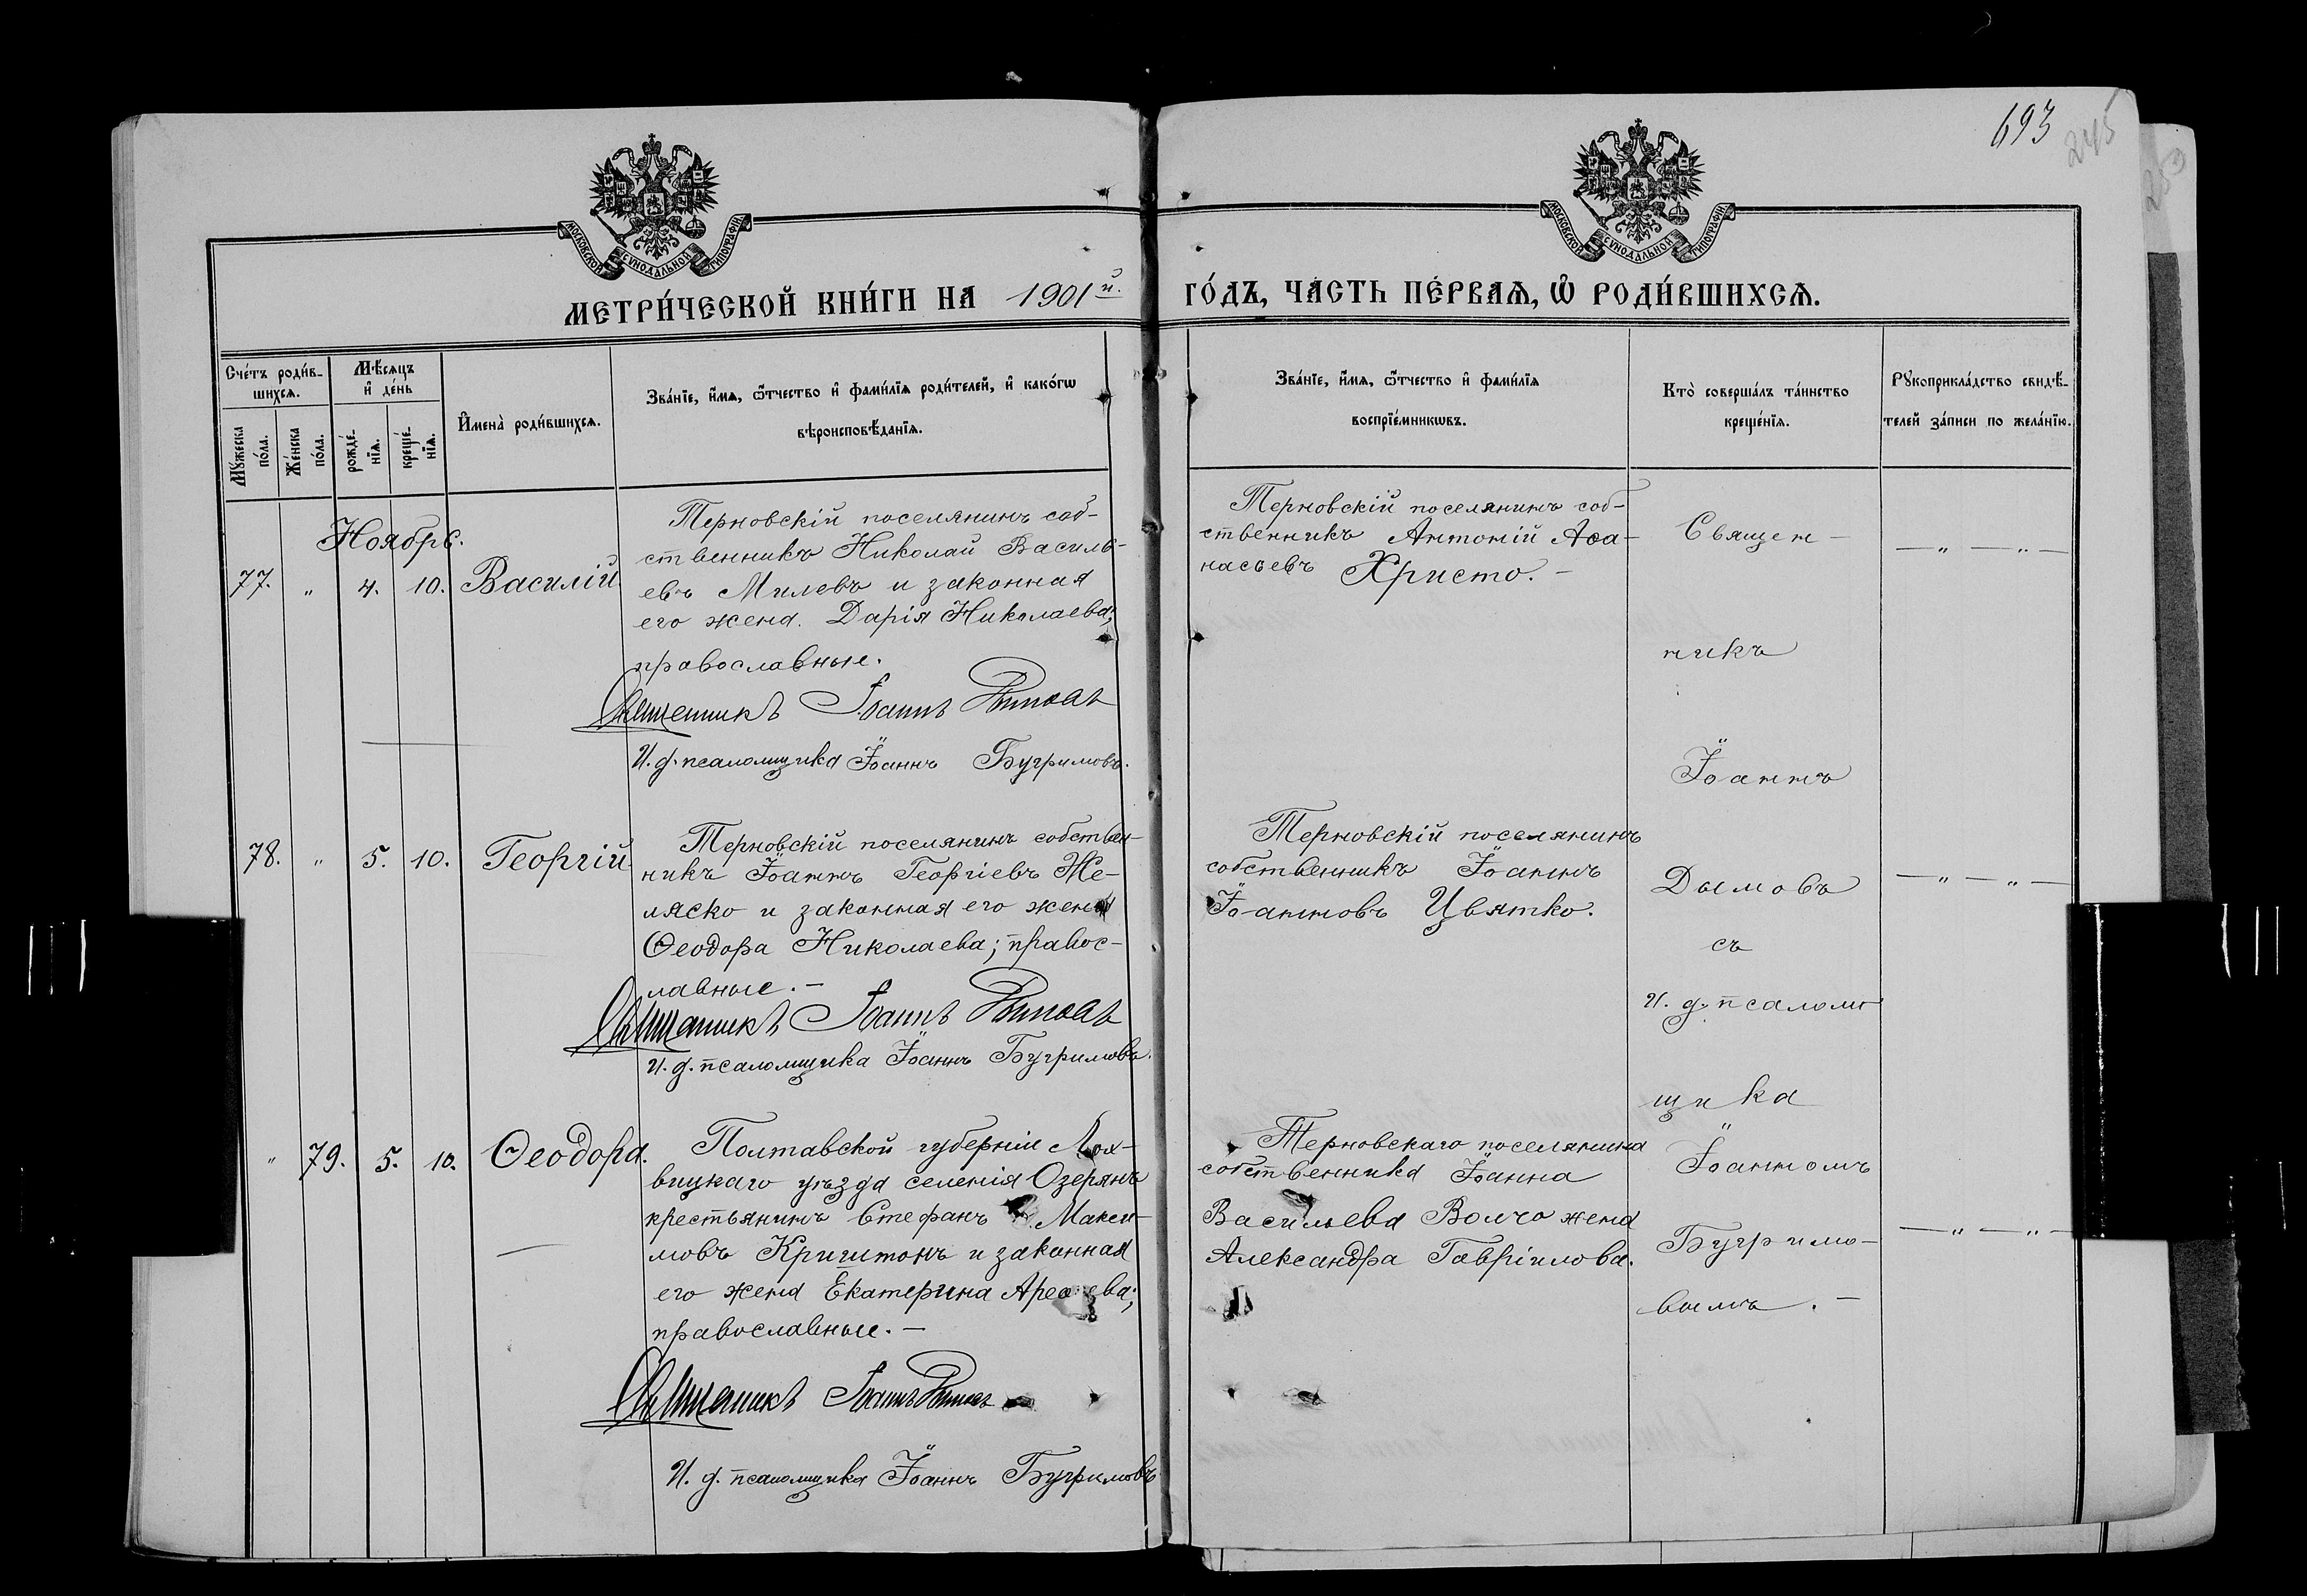 693
245
МОСКОВСКОЙ СѴНОДАЛЬНОЙ ТИПОГРАФІИ
МОСКОВСКОЙ СѴНОДАЛЬНОЙ ТИПОГРАФІИ
МЕТРИ́ЧЕСКОЙ КНИ́ГИ НА 1901й. ГО́ДЪ, ЧА́СТЬ ПЕ́РВАѦ, Ѡ҆ РОДИ́ВШИХСѦ.
Сче́тъ роди́в-
шихсѧ.
Мꙋ́жеска
по́ла.
Же́нска
по́ла.
Мѣ́сѧцъ
и҆ де́нь
рожде́-
нїѧ.
креще́-
нїѧ.
И҆мена̀ роди́вшихсѧ.
Зва́нїе, и҆́мѧ, ѻ҆́тчество и҆ фами́лїѧ роди́телей, и҆ како́гѡ
вѣроисповѣ́данїѧ.
Зва́нїе, и҆́мѧ, ѻ҆́тчество и҆ фами́лїѧ
воспрїе́мникѡвъ.
Кто̀ соверша́лъ та́инство
креще́нїѧ.
Рꙋкоприкла́дство свидѣ́-
телей за́писи по жела́нїю.
Ноябрь.
77. „ 4. 10. Василій.
Терновскій поселянинъ соб-
ственникъ Николай Василь-
евъ Милевъ и законная
его жена. Дарія Николаева;
православные.
Священникъ Іоаннъ Дымовъ
И. д. псаломщика Іоаннъ Бугримовъ.
Терновскій поселянинъ соб-
ственникъ Антоній Аѳа-
насьевъ Христо. —
Священ-
никъ
Іоаннъ
Дымовъ
съ
и. д. псалом-
щика
Іоанномъ
Бугримо-
вымъ. —
— „ — „ —
78. „ 5. 10. Георгій.
Терновскій поселянинъ собствен-
никъ Іоаннъ Георгіевъ Же-
ляско и законная его жена
Ѳеодора Николаева; правос-
лавные. —
Священникъ Іоаннъ Дымовъ
И. д. псаломщика Іоаннъ Бугримовъ.
Терновскій поселянинъ
собственникъ Іоаннъ
Іоанновъ Цвятко.
— „ — „ —
„ 79. 5. 10. Ѳеодора.
Полтавской губерніи Лох-
вицкаго уѣзда селенія Озерянъ
крестьянинъ Стефанъ Макси-
мовъ Криштонъ и законная
его жена Екатерина
православные. —
Священникъ Іоаннъ Дымовъ
И. д. псаломщика Іоаннъ Бугримовъ
Терновскаго поселянина
собственника Іоанна
Васильева Волчо жена
Александра Гавріилова.
— „ — „ —